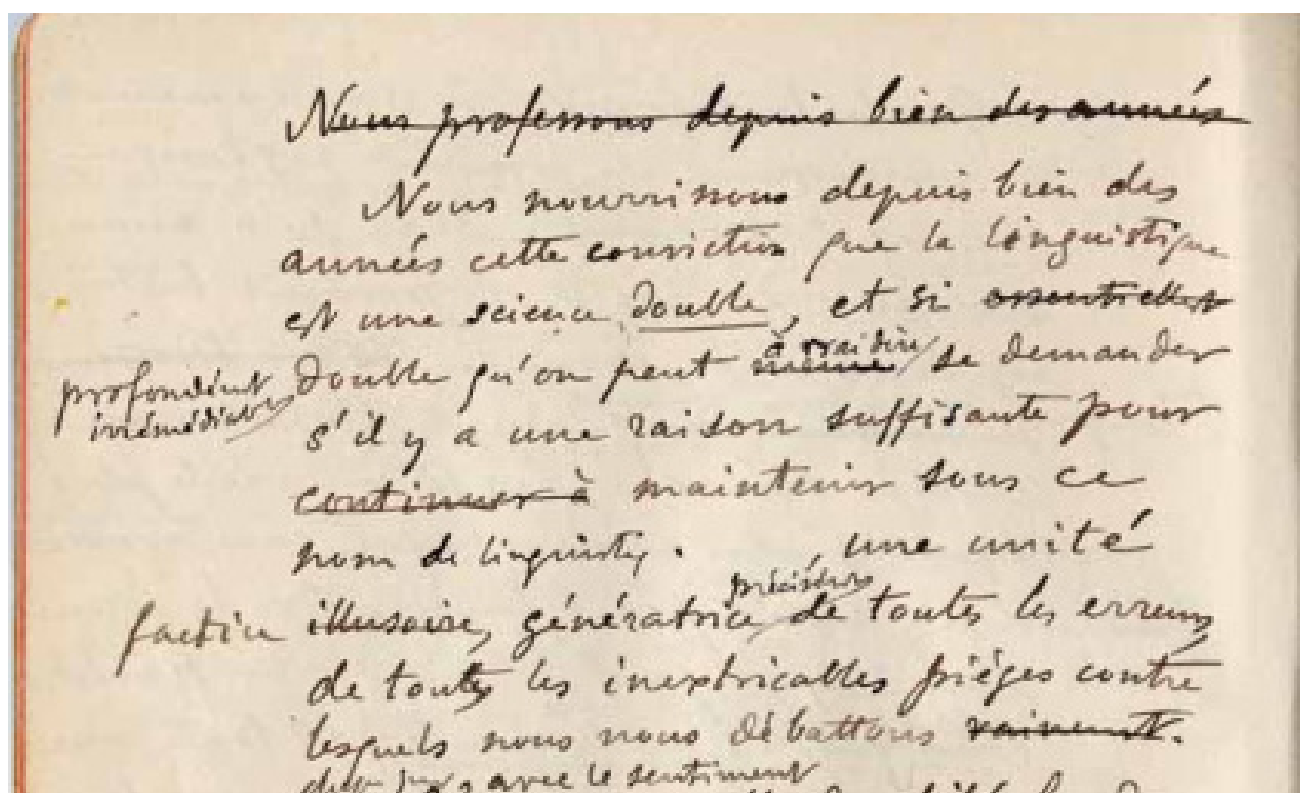 Nous professons depuis bien des années
Nous nourrissons depuis bien des
années cette conviction que la linguistique
est une science double, et si essentiellet
profondémt irrémédiablt
double qu'on peut même à vrai dire se demander
s'il y a une raison suffisante pour
continuer à maintenir sous ce
nom de linguistiq. une unité
factice illusoire, génératrice précisémt de toutes les erreurs
de toutes les inextricables pièges contre
lesquels nous nous débattons vainemt.
avec le sentiment